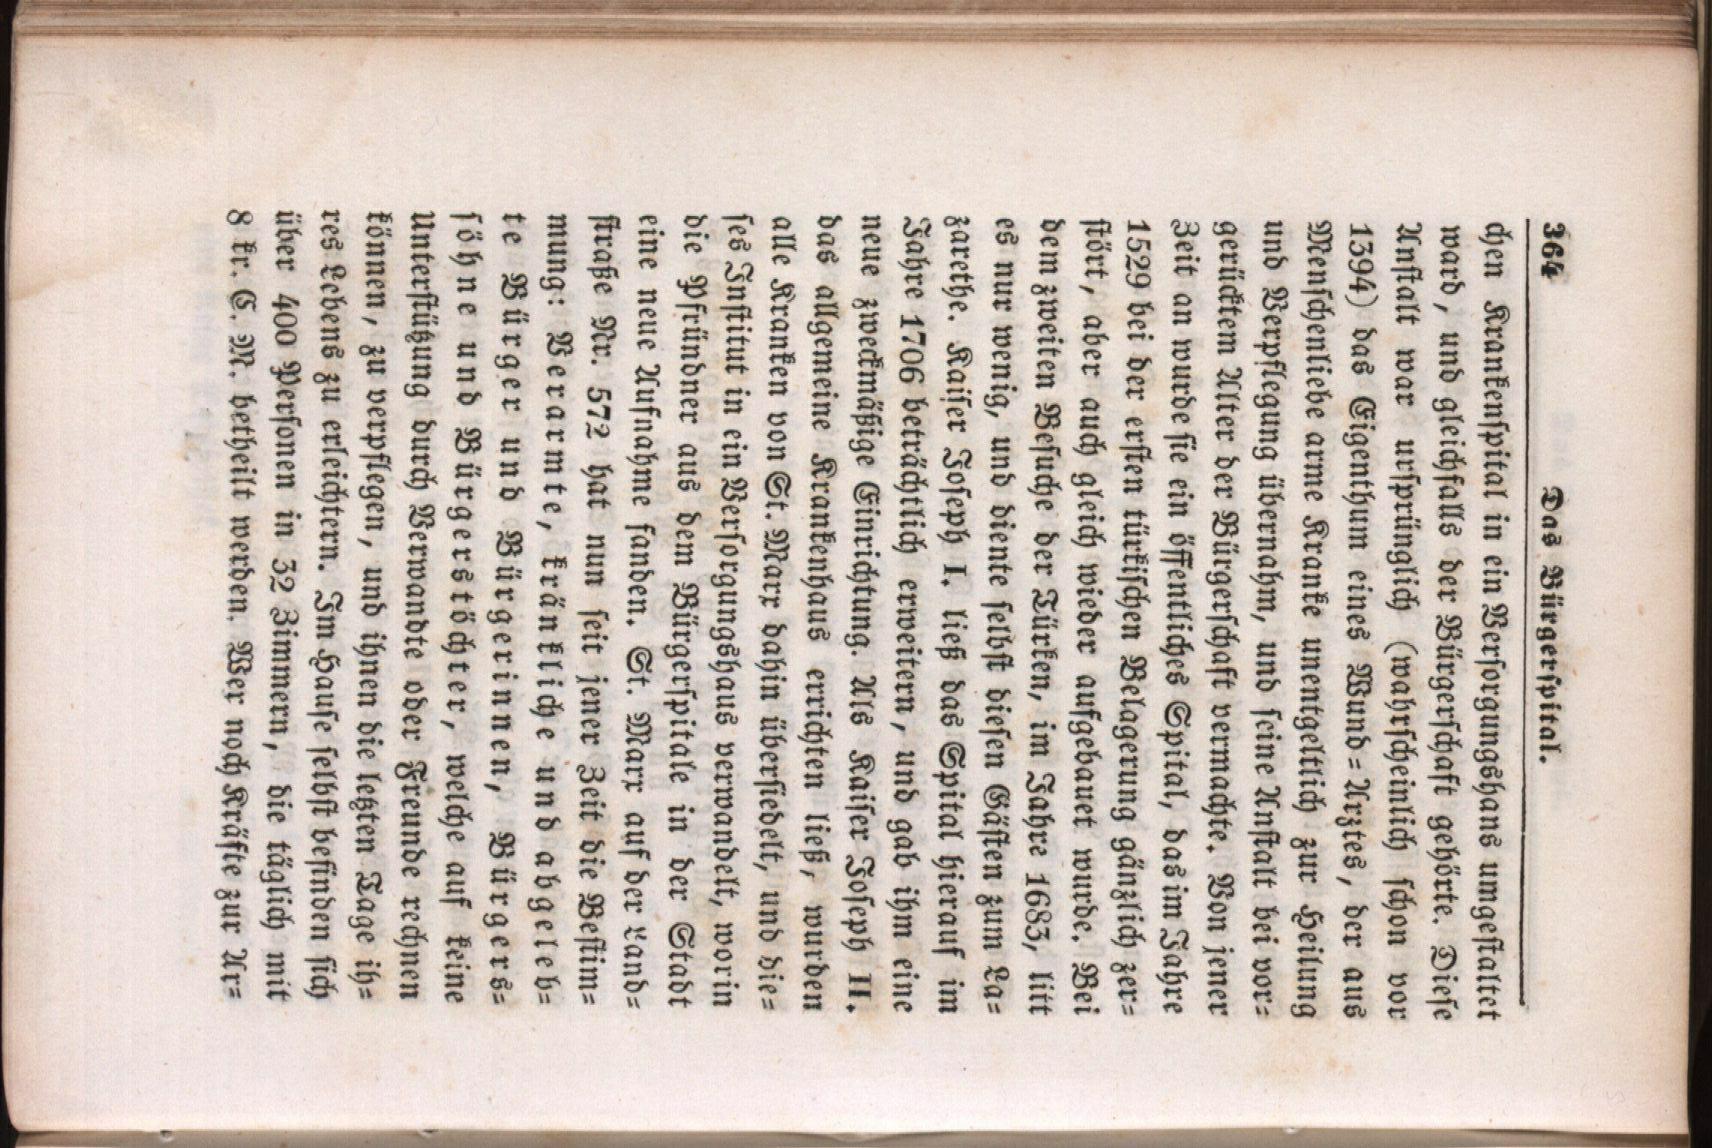 364 Das Bürgerspital.
chen Krankenspital in ein Versorgungshaus umgestaltet
ward, und gleichfalls der Bürgerschaft gehörte. Diese
Anstalt war ursprünglich (wahrscheinlich schon vor
1394) das Eigenthum eines Wund=Arztes, der aus
Menschenliebe arme Kranke unentgeltlich zur Heilung
und Verpflegung übernahm, und seine Anstalt bei vor=
gerücktem Alter der Bürgerschaft vermachte. Von jener
Zeit an wurde sie ein öffentliches Spital, das im Jahre
1529 bei der ersten türkischen Belagerung gänzlich zer=
stört, aber auch gleich wieder aufgebauet wurde. Bei
dem zweiten Besuche der Türken, im Jahre 1683, litt
es nur wenig, und diente selbst diesen Gästen zum La=
zarethe. Kaiser Joseph I. ließ das Spital hierauf im
Jahre 1706 beträchtlich erweitern, und gab ihm eine
neue zweckmäßige Einrichtung Als Kaiser Joseph II.
das allgemeine Krankenhaus errichten ließ, wurden
alle Kranken von St. Marx dahin übersiedelt, und die=
ses Institut in ein Versorgungshaus verwandelt, worin
die Pfründner aus dem Bürgerspitale in der Stadt
eine neue Aufnahme fanden. St. Marx auf der Land=
straße Nr. 572 hat nun seit jener Zeit die Bestim=
mung: Verarmte, kränkliche und abgeleb=
te Bürger und Bürgerinnen, Bürgers=
söhne und Bürgerstöchter, welche auf keine
Unterstützung durch Verwandte oder Freunde rechnen
können, zu verpflegen, und ihnen die letzten Tage ih=
res Lebens zu erleichtern. Im Hause selbst befinden sich
über 400 Personen in 32 Zimmern, die täglich mit
8 kr. C. M. betheilt werden. Wer noch Kräfte zur Ar=